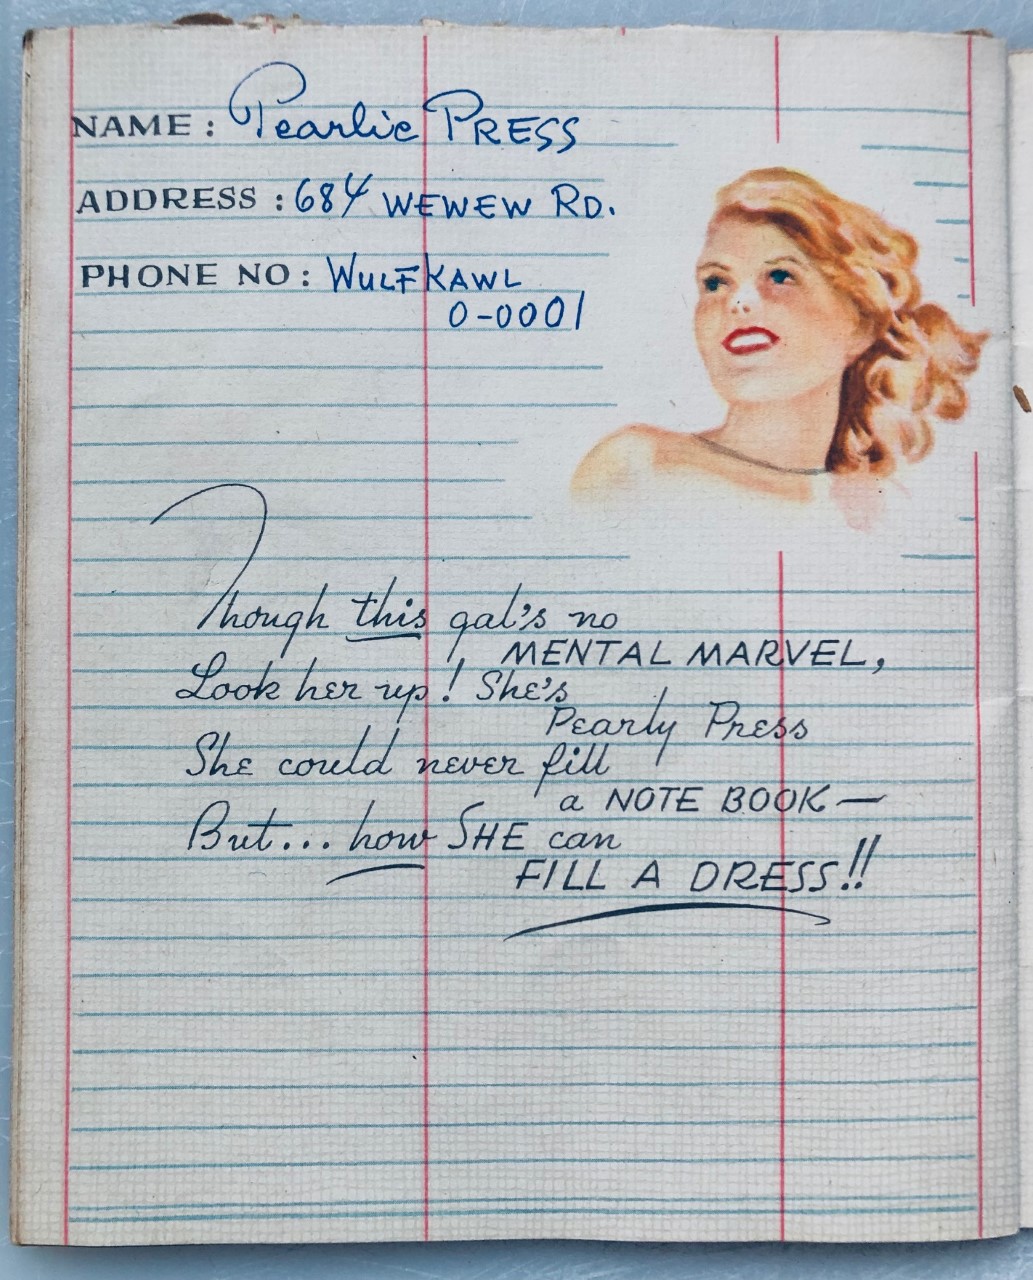 NAME: Pearlie PRESS
ADDRESS: 684 WEWEW RD.
PHONE NO: WULFKAWL
0-0001
Though this gal's no
MENTAL MARVEL,
Look her up! She's
Pearly Press
She could never fill
a NOTE BOOK—
But... how SHE can
FILL A DRESS!!